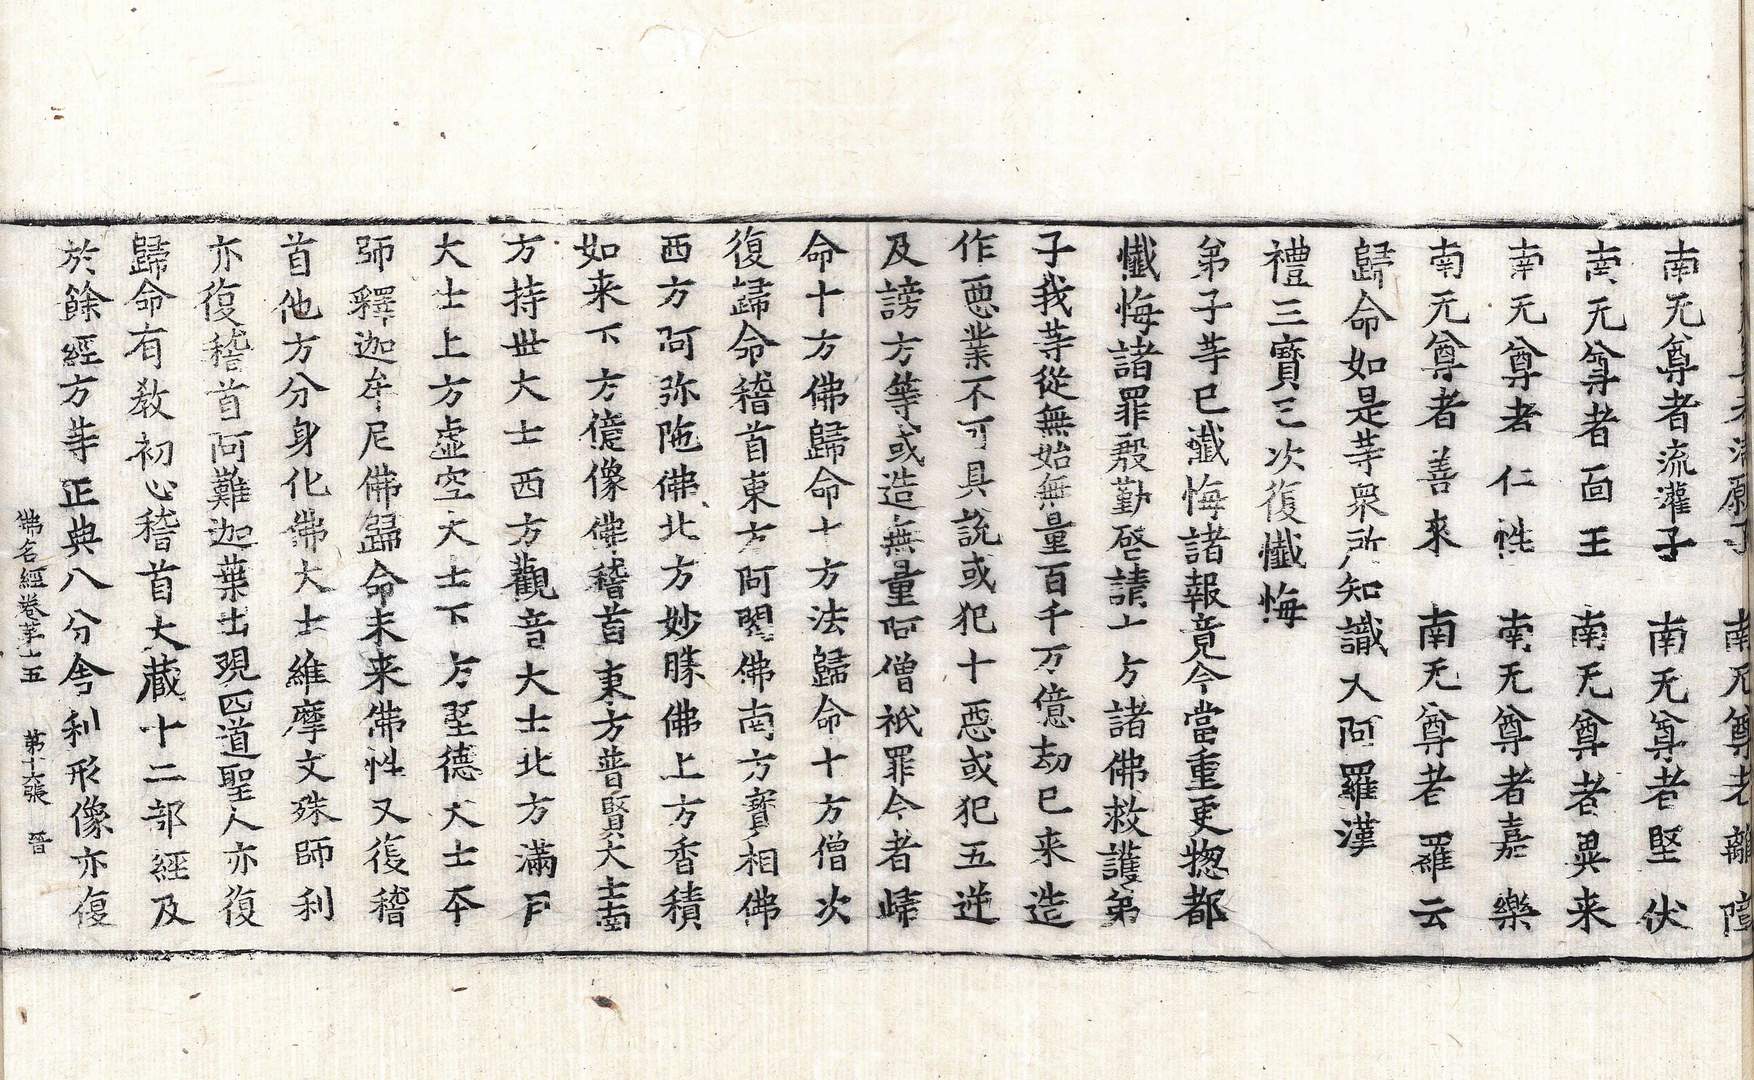 南无尊者離障
南无尊者流灌子 南无尊者堅伏
南无尊者面王 南无尊者異来
南无尊者仁性 南无尊者嘉樂
南无尊者善来 南无尊者羅云
歸命如是䓁衆所知識大阿羅漢
禮三寶已次復懺悔
弟子䓁已懺悔諸報竟今當重更揔都
懺悔諸罪殷勤啓請十方諸佛救護弟
子我䓁從無始無量百千万億劫已来造
作惡業不可具說或犯十惡或犯五逆
及謗方等或造無量阿僧祇罪今者歸
命十方佛歸命十方法歸命十方僧次
復歸命稽首東方阿閦佛南方寶相佛
西方阿弥陁佛北方妙勝佛上方香積
如来下方億像佛稽首東方普賢大士南
方持世大士西方觀音大士北方滿月
大士上方虛空大士下方堅德大士本
師釋迦牟尼佛歸命未来佛性又復稽
首他方分身化佛大士維摩文殊師利
亦復稽首阿難迦葉出現四道聖人亦復
歸命有教初心稽首大藏十二部經及
於餘經方䓁正典八分舍利形像亦復
佛名經卷苐十五 苐十六張 晉